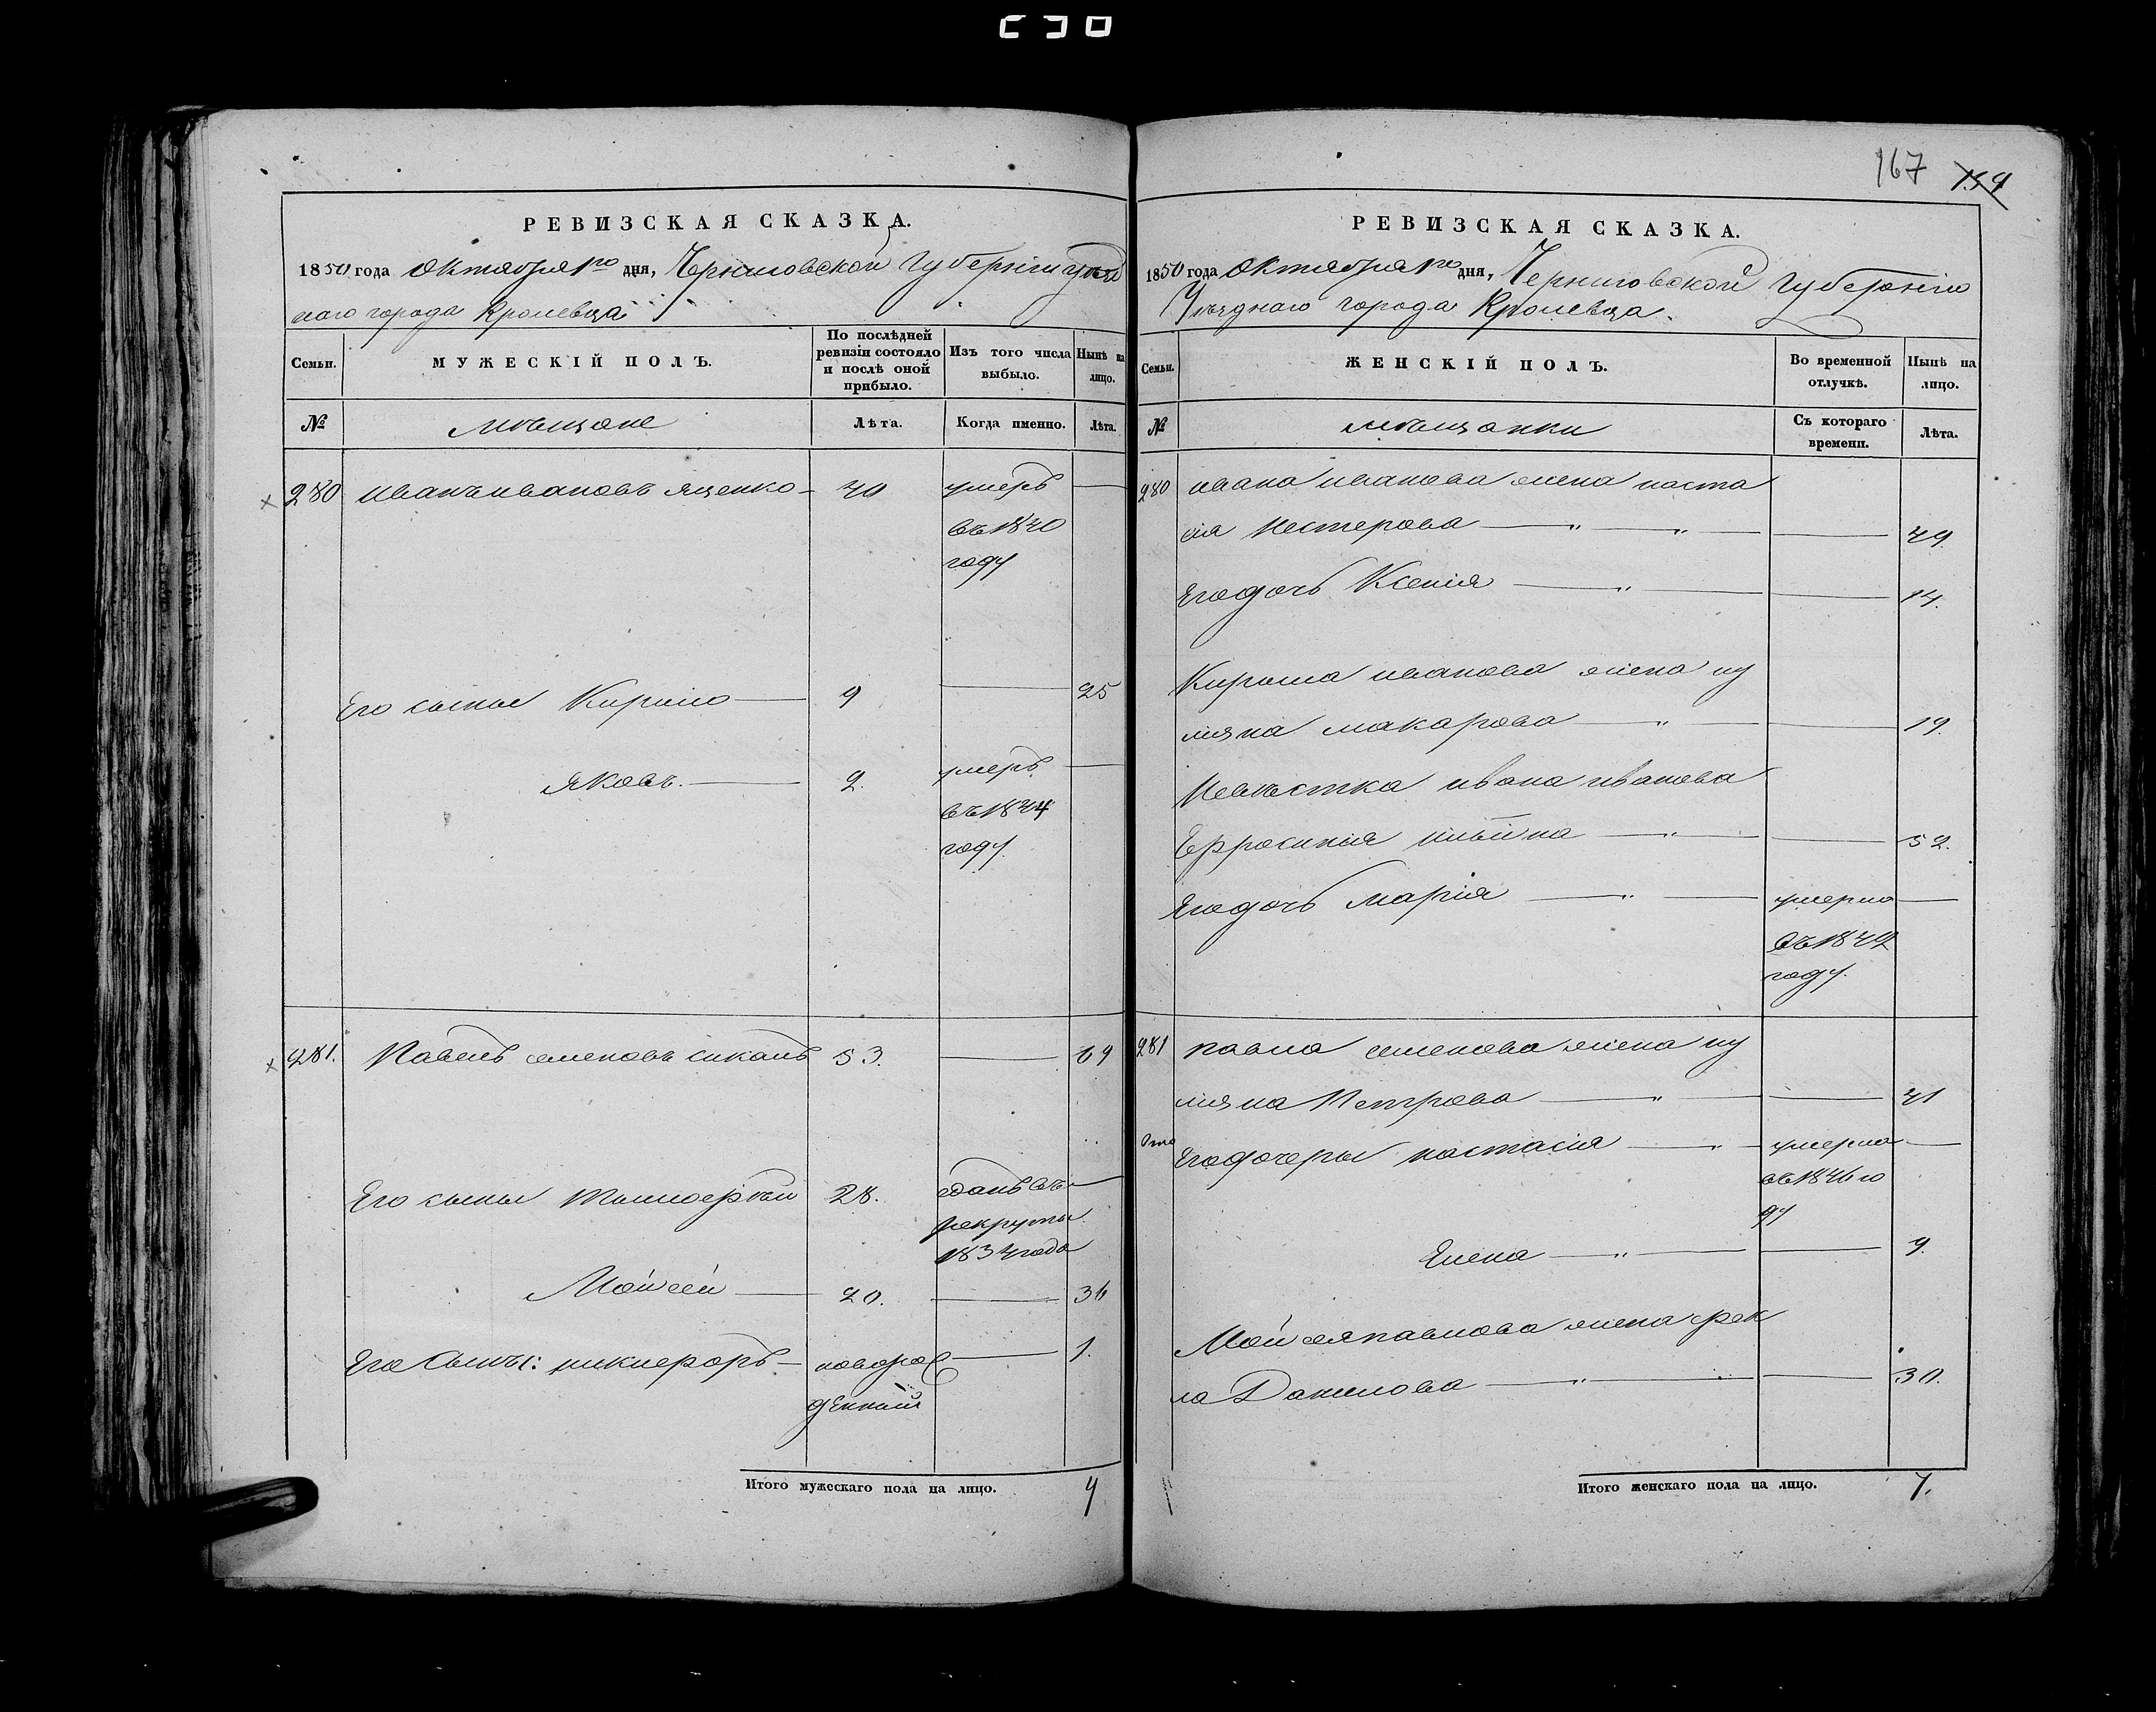 167 159
РЕВИЗСКАЯ СКАЗКА.
1850 года Октября 1го дня, Черниговской Губернiи уѣзд
наго города Кролевца
Семьи. МУЖЕСКIЙ ПОЛЪ. По послѣдней ревизiи состояло и послѣ оной прибыло. Изъ того числа выбыло. Нынѣ на лицо.
№ мѣщане Лѣта. Когда именно. Лѣта.
280 иванъ ивановъ яценко 40 умеръ
въ 1840
году
Его сыны Кирило 9 25
яковъ. 2. умеръ
въ 1844
году.
281. Павелъ семеновъ сикалъ 53. 69
Его сыны тимофѣи 28. зданъ въ
рекруты
1834 года
Мойсей 20. 36
Его Сынъ: никифоръ новорож 1.
денний
Итого мужескаго пола на лицо. 4
РЕВИЗСКАЯ СКАЗКА.
1850 года Октября 1го дня, Черниговской Губернiи
Уѣзднаго города Кролевца.
Семьи. ЖЕНСКIЙ ПОЛЪ. Во временной отлучкѣ. Нынѣ на лицо.
№ мѣщанки Съ котораго времени. Лѣта.
280 ивана иванова жена наста
сiя Нестерова 49.
Его дочь Ксенiя 14.
Кирыла иванова жена иу
лияна макарова 19.
Невѣстка ивана иванова
Ефросинiя ильина 52.
Его дочь марiя умерла
въ 1842
году.
281 павла семенова жена иу
лияна Петрова 41
Его дочеры настасiя умерла
въ 1846 го
ду
Елена 9.
Мойсея павлова жена фек
ла Данилова 30.
Итого женскаго пола на лицо. 7.